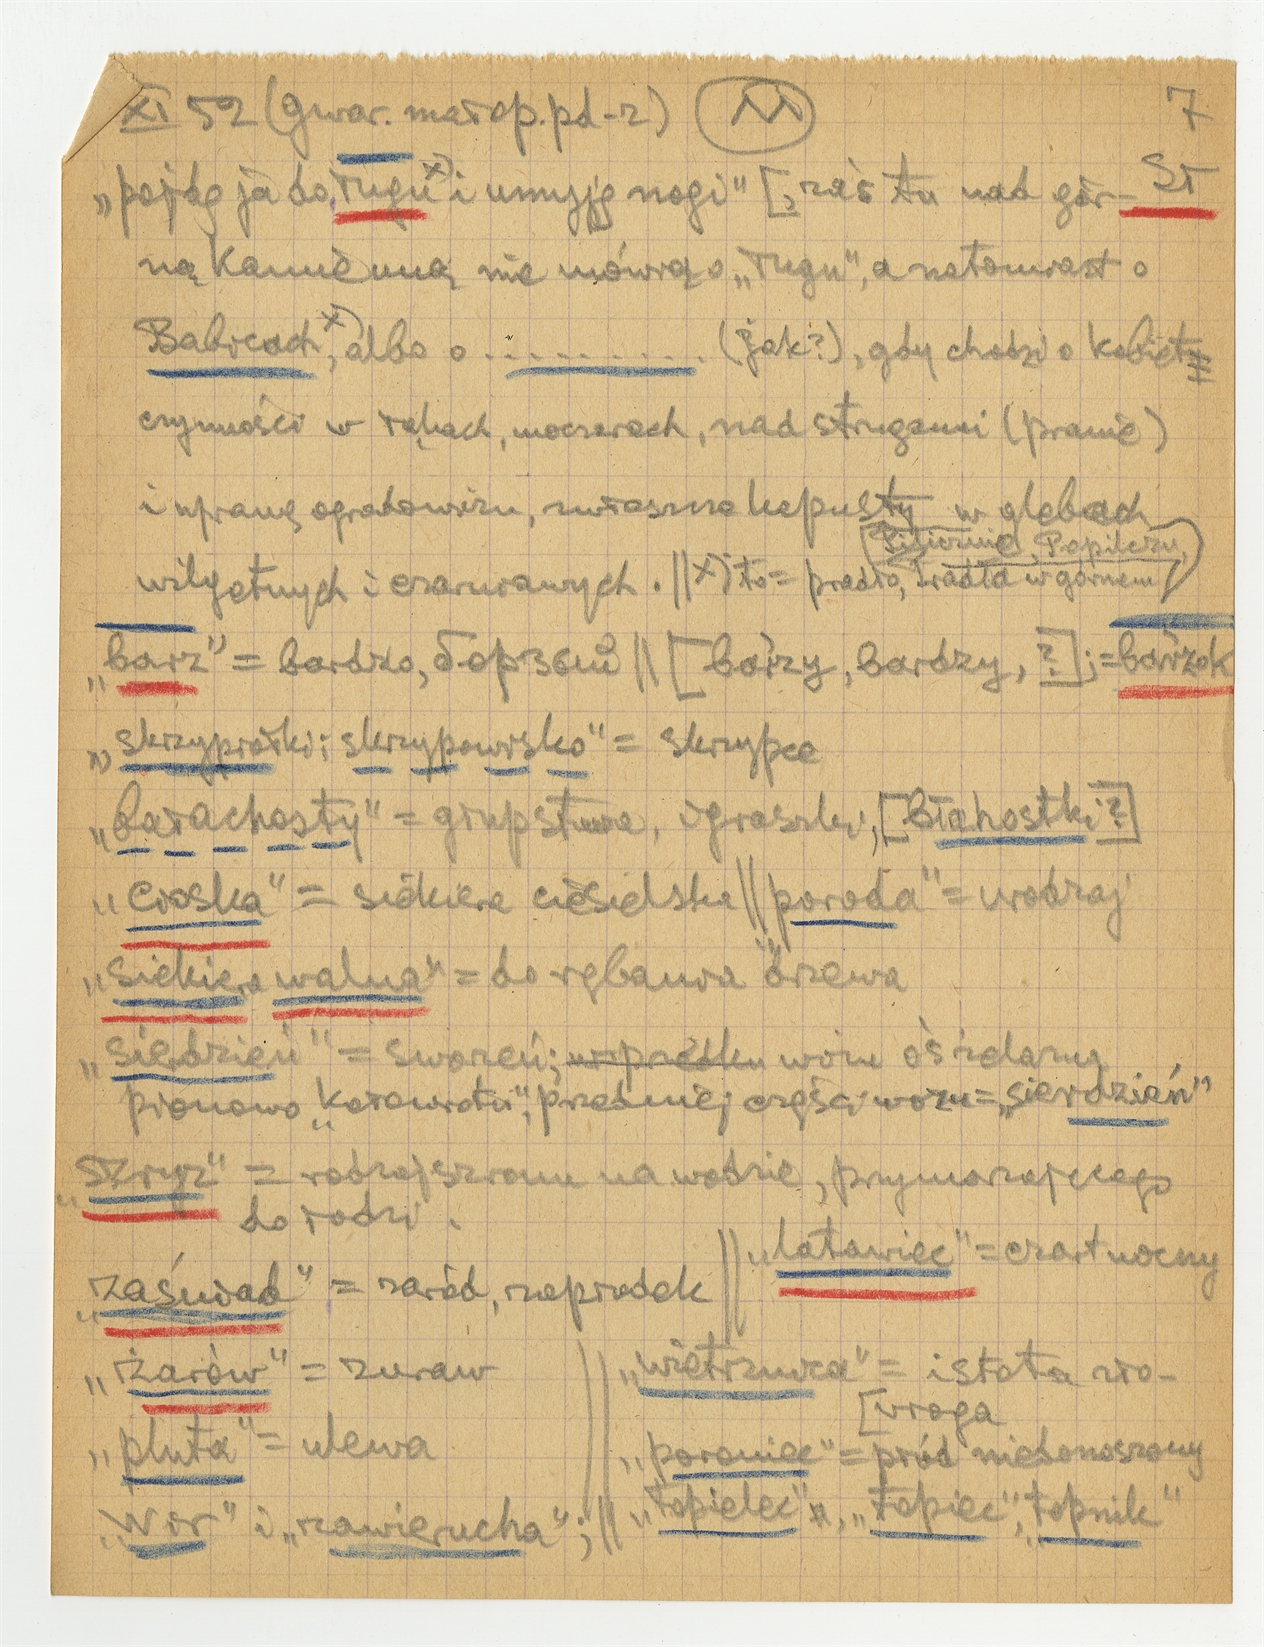 XI 52 (gwar. małop. pd-z) M 7
„pójdę ja do ługu x) i umyję nogi" [, zaś tu nad gór- SŁ
ną Kamienną nie mówią o „ługu", a natomiast o
Babicach x), albo o .......... (jak?), gdy chodzi o kobiet
czynności w łąkach, moczarach, nad strugami (pranie)
i uprawę ogrodowizn, zwłaszcza kapusty w glebach
wilgotnych i czarnawych. || x) to = pradło, źradła w górnem
Popilczu
„barz" = bardzo, борзый || [barzy, bardzy, ?]; = barzok
„skrzypiołki; skrzypowisko" = skrzypce
„bałachosty" = głupstwa, igraszki, [błahostki?]
„cioska" = siekiera ciesielska || poroda" = urodzaj
„siekiera walna" = do rębania drzewa
„sierdzień" = sworzeń; w przodku wozu oś żelazna
pionowo „kołowrotu", przedniej części wozu = „sierdzień"
„stryż" = rodzaj szronu na wodzie, przymarzającego
do łodzi.
„zaświad" = zaród, zaprodek || „latawiec" = czart nocny
„żarów" = żuraw || „wietrznica" = istota zło-
[wroga
„pluta" = ulewa „poroniec" = płód niedonoszony
„Wir" i „zawierucha"; || „topielec", „topiec", „topnik"